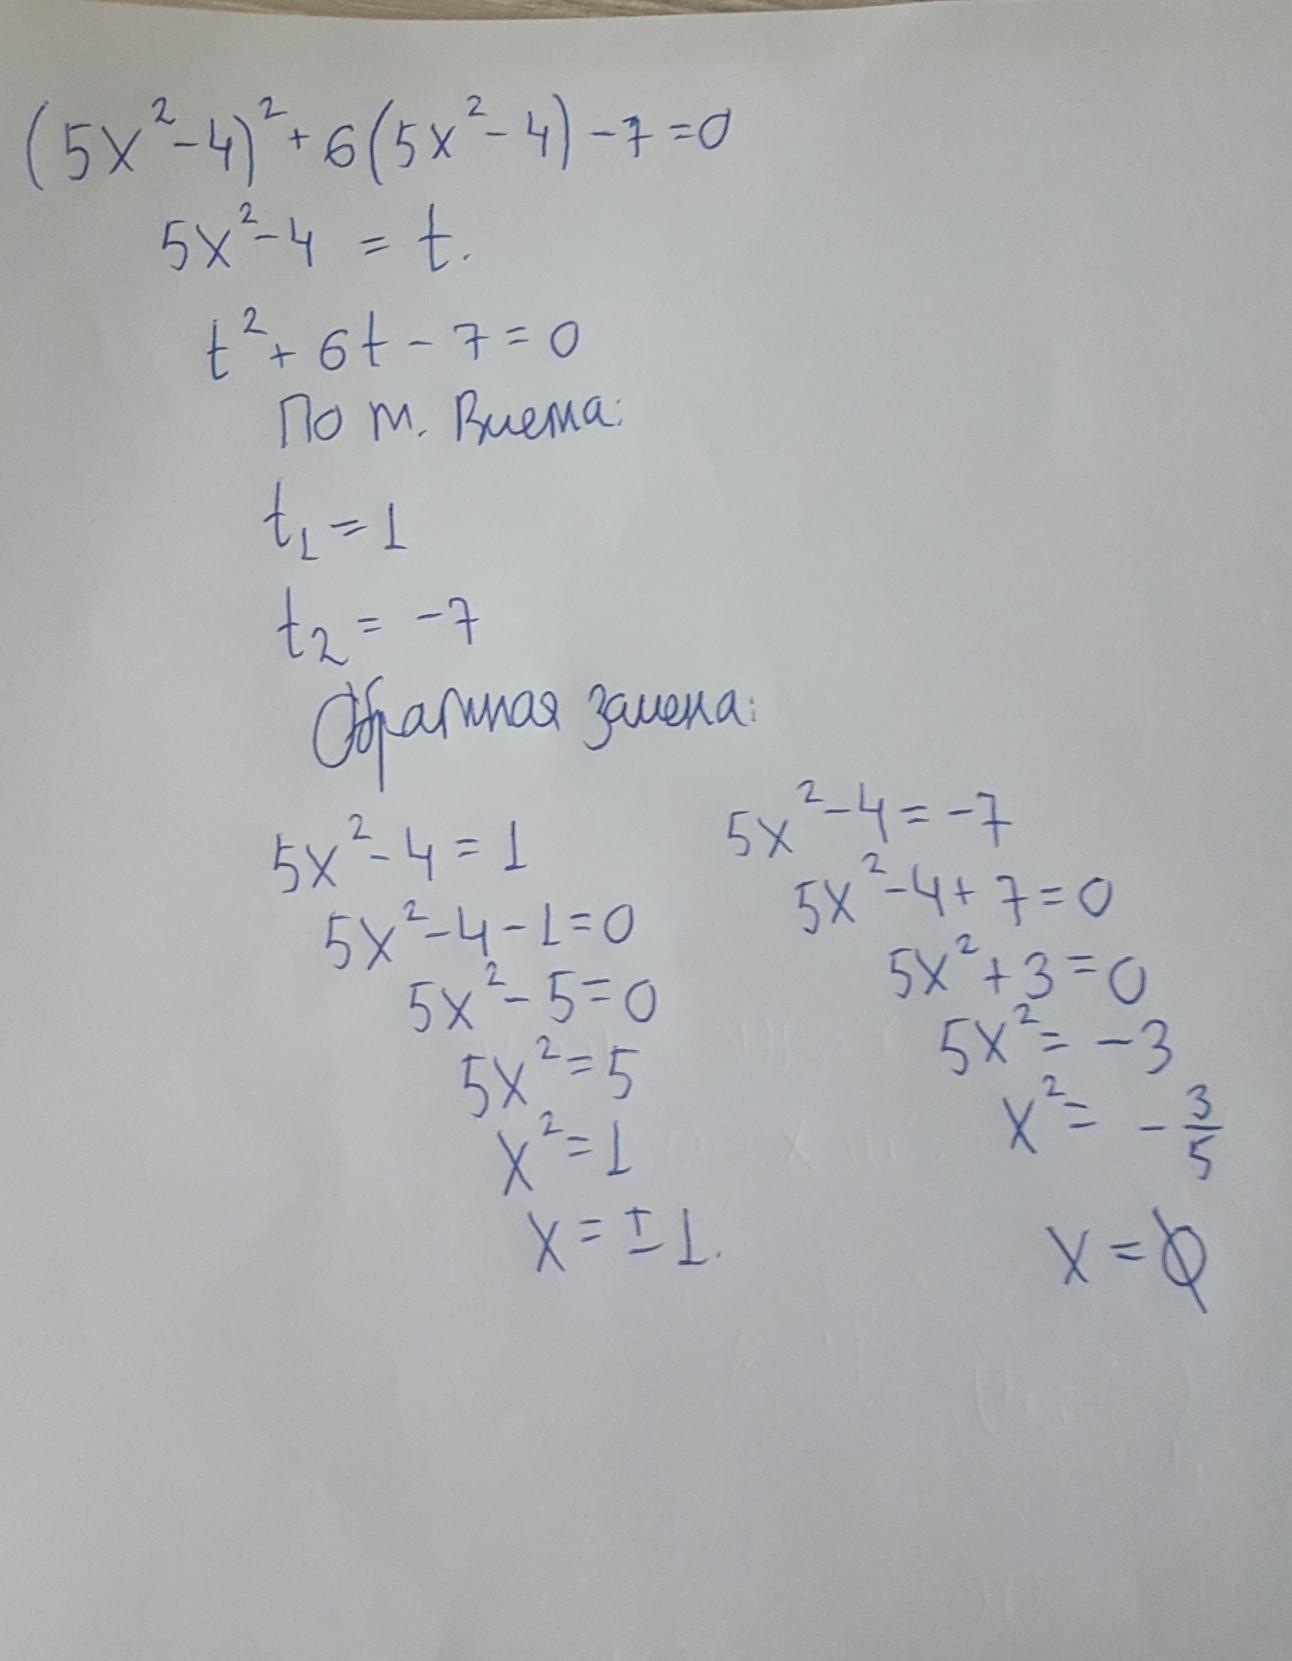 (5x²-4)²+6(5x²-4)-7=0
5x²-4 = t.
t²+6t-7=0
По т. Виета:
t₁=1
t₂=-7
Обратная замена:
5x²-4=1
5x²-4-1=0
5x²-5=0
5x²=5
x²=1
x=±1.
5x²-4=-7
5x²-4+7=0
5x²+3=0
5x²=-3
x²= -3/5
x=∅